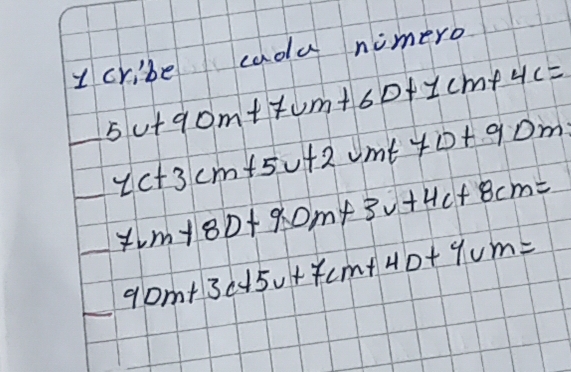 1 cribe cada número
5U+9Dm+7um+6D+1cm+4c=
1c+3cm+5u+2um+7D+9Dm=
7um+8D+9Dm+3u+4c+8cm=
9Dm+3c+5u+7cm+4D+9um=